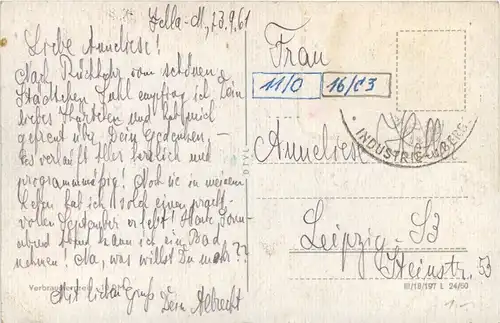 Zella-M., 23.9.61
Liebe Anneliese!
Nach Rückkehr vom schönen
Städtchen Suhl empfing ich Dein
liebes Kärtchen und hab mich
gefreut über Dein Gedenken –
es verläuft alles herrlich und
programmäßig! Noch nie in meinem
Leben hab ich solch einen pracht-
vollen September erlebt! Heute, Sonn-
abend kann ich ein Bad
nehmen! Na, was willst Du mehr??
Mit lieben Gruß
Dein Albrecht
Verbraucherpreis
Frau
11/0 16/C3
INDUSTRIE-
Anneliese
Leipzig-S3
Steinstr. 53
III/18/197 L 24/60
1.-